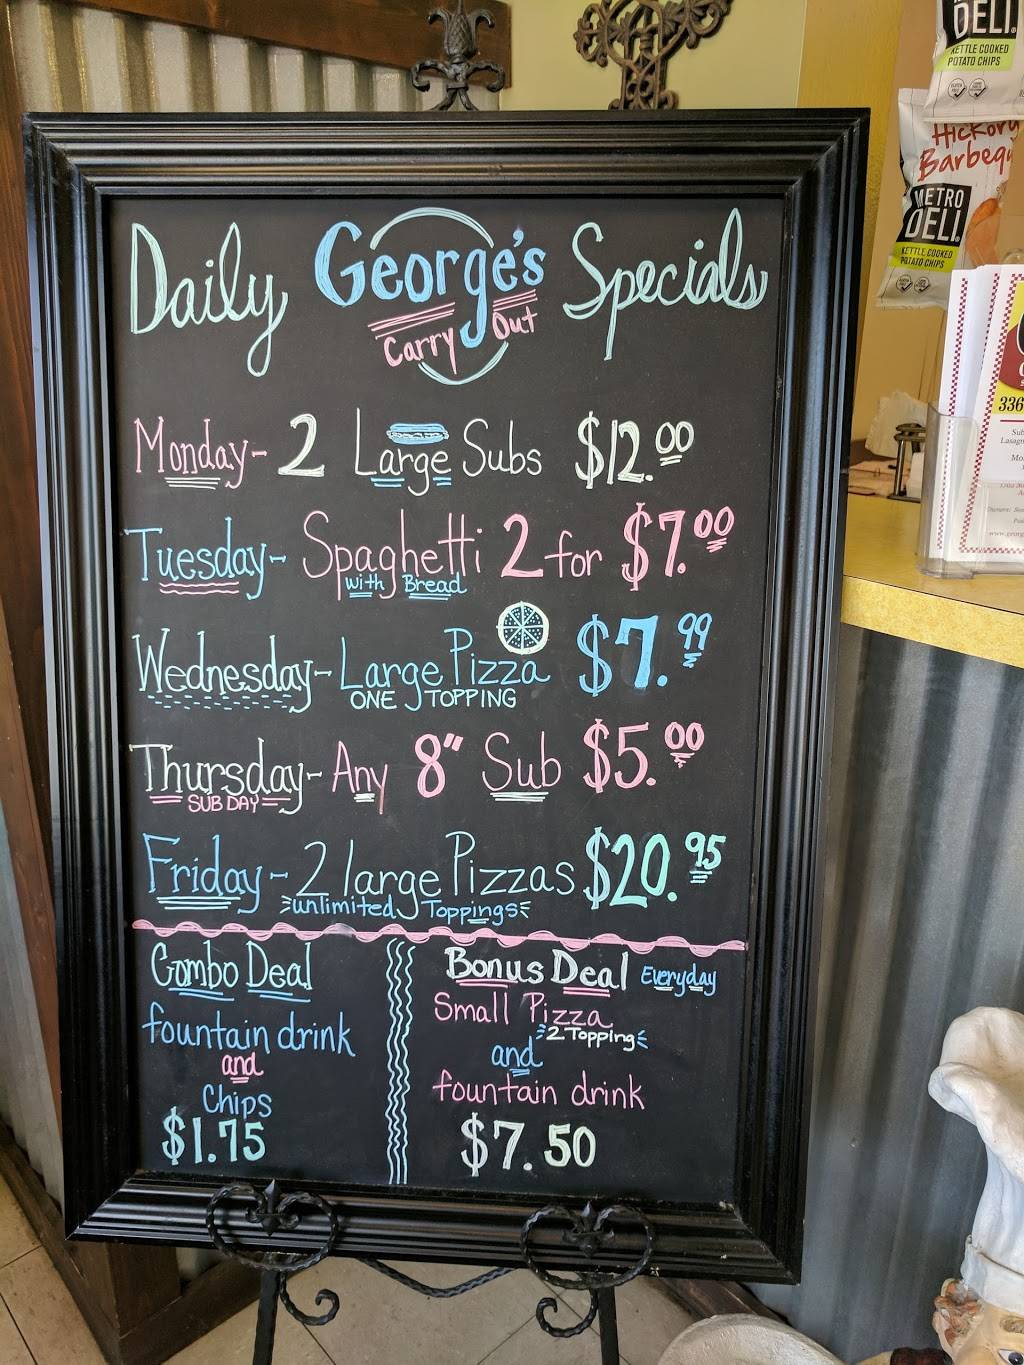 Daily George's Specials
Carry Out
Monday- 2 Large Subs $12.00
Tuesday- Spaghetti 2 for $7.00
with Bread
Wednesday- Large Pizza $7.99
ONE TOPPING
Thursday- Any 8" Sub $5.00
SUB DAY
Friday- 2 large Pizzas $20.95
unlimited Toppings
Combo Deal
fountain drink
and
Chips
$1.75
Bonus Deal Everyday
Small Pizza
2 Topping
and
fountain drink
$7.50
DELI
KETTLE COOKED
POTATO CHIPS
Hickory
METRO
DELI
KETTLE COOKED
POTATO CHIPS
336